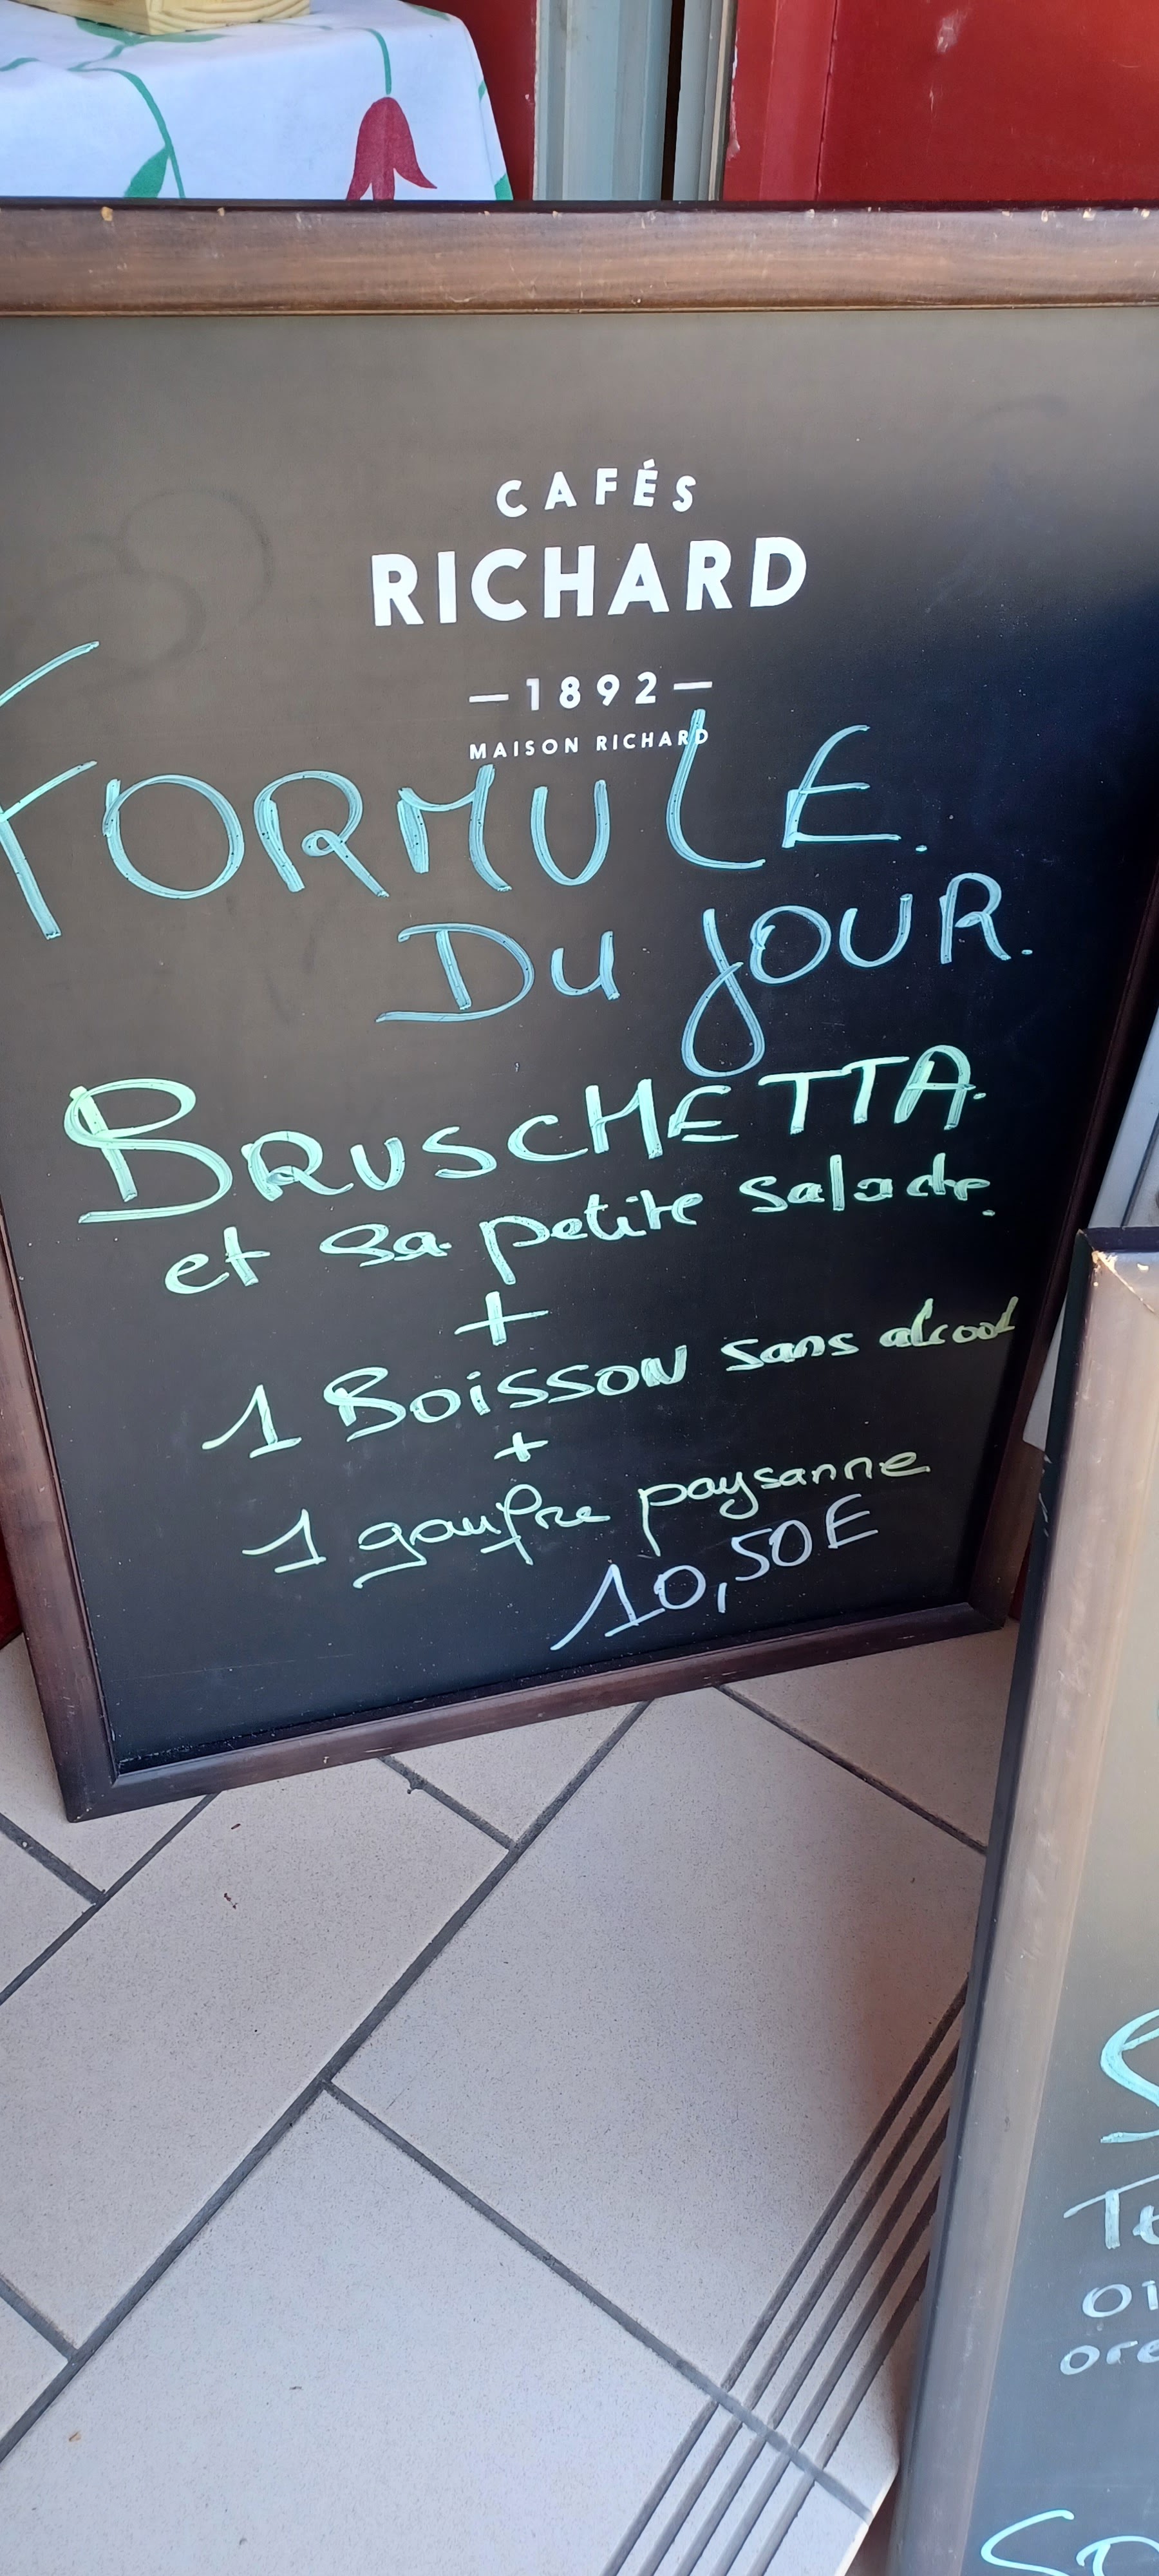 CAFÉS
RICHARD
—1892—
MAISON RICHARD
FORMULE.
DU JOUR.
BRUSCHETTA.
et sa petite salade.
+
1 BOISSON sans alcool
+
1 gaufre paysanne
10,50E